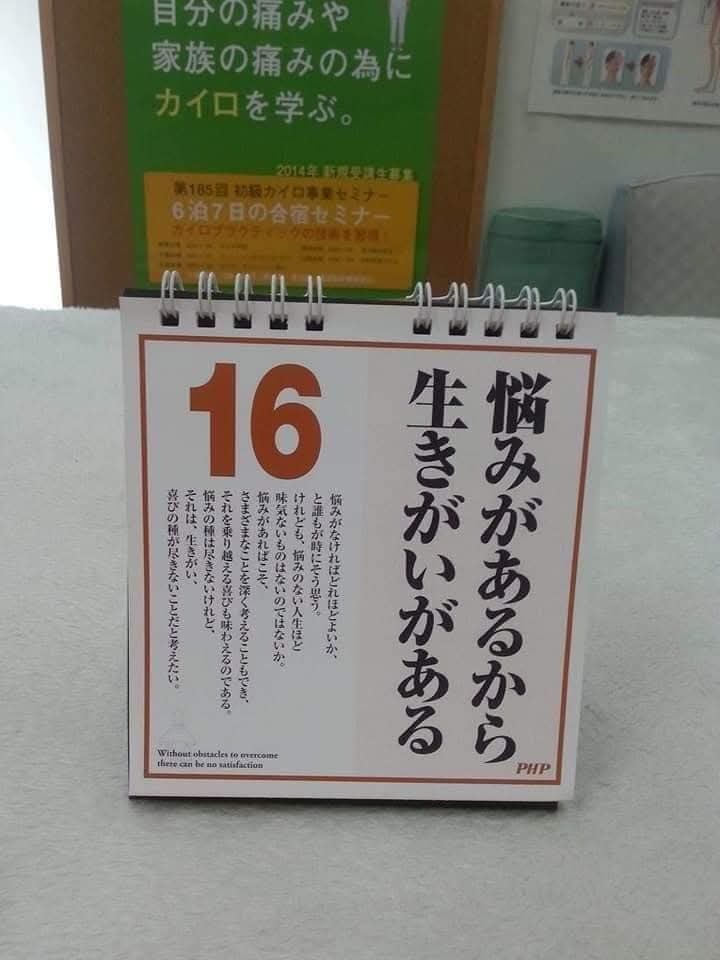 自分の痛みや
家族の痛みの為に
カイロを学ぶ。
2014年 新規受講生募集
第185回 初級カイロ事業セミナー
6泊7日の合宿セミナー
カイロプラクティックの技術を習得!
悩みがあるから
生きがいがある
PHP
16
悩みがなければどれほどよいか、
と誰もが時にそう思う。
けれども、悩みのない人生ほど
味気ないものはないのではないか。
悩みがあればこそ、
さまざまなことを深く考えることもでき、
それを乗り越える喜びも味わえるのである。
悩みの種は尽きないけれど、
それは、生きがい、
喜びの種が尽きないことだと考えたい。
Without obstacles to overcome
there can be no satisfaction